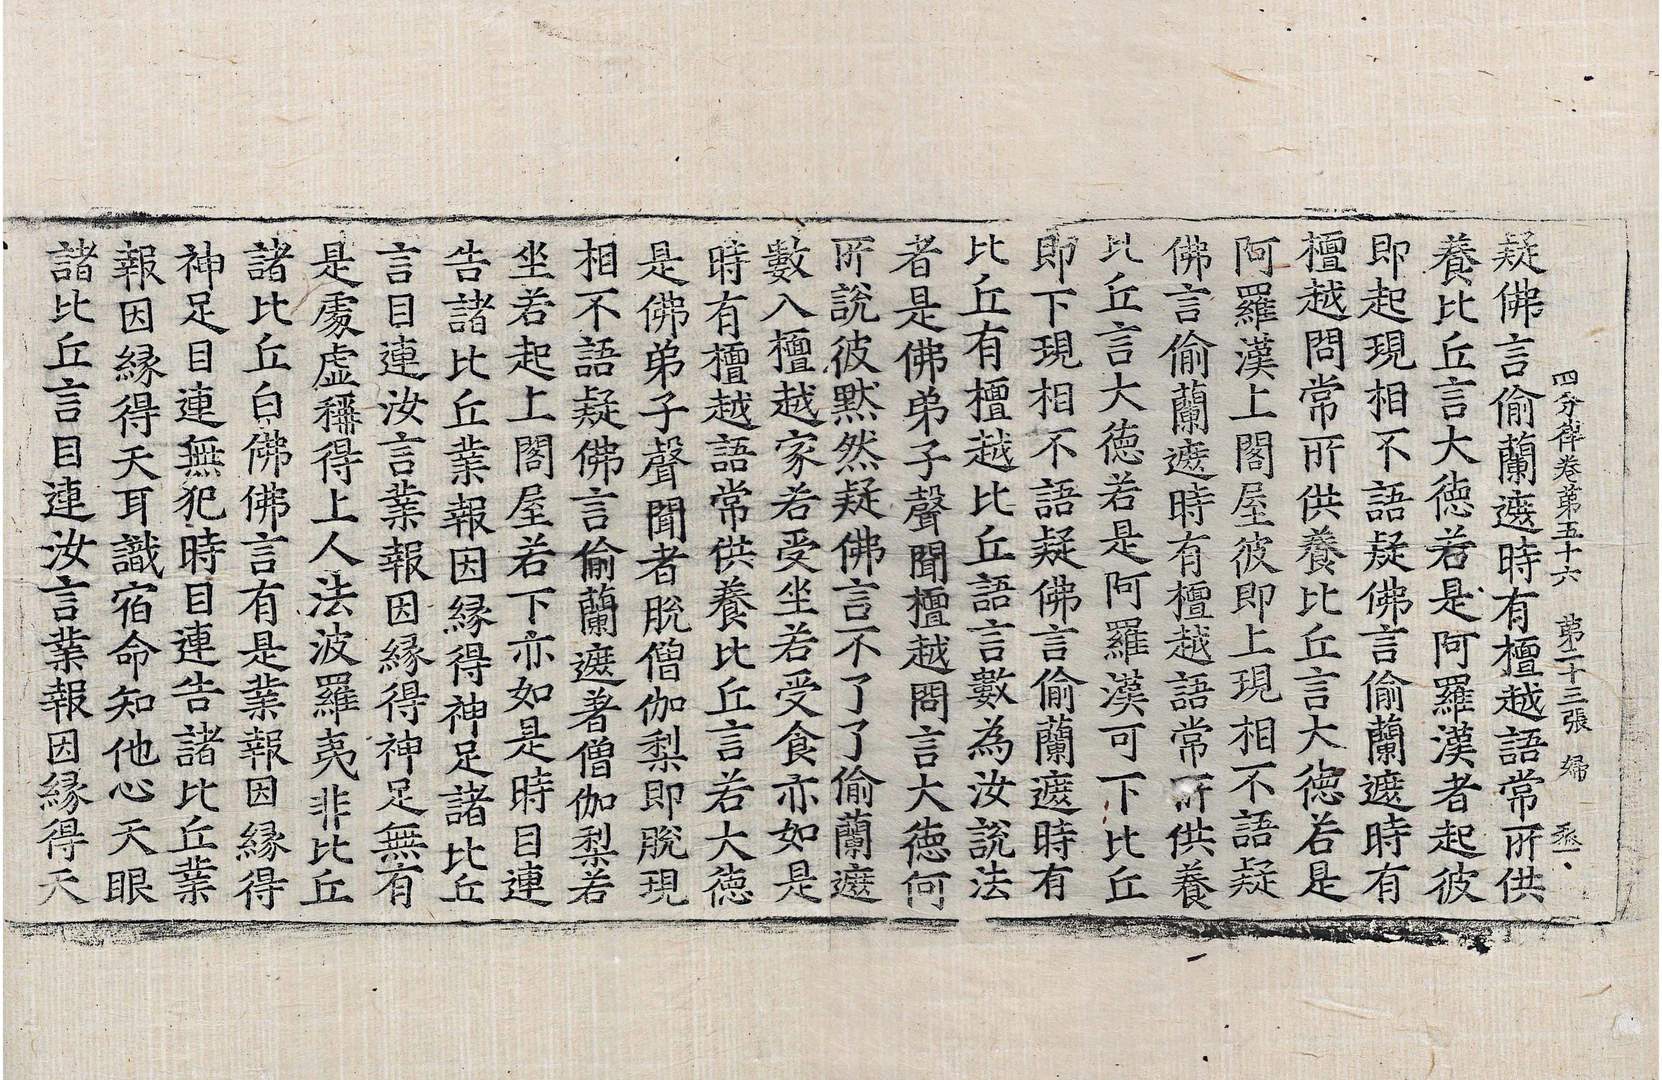 四分律卷第五十六 第二十三張 婦
疑佛言偷蘭遮時有檀越語常所供
養比丘言大德若是阿羅漢者起彼
即起現相不語疑佛言偷蘭遮時有
檀越問常所供養比丘言大德若是
阿羅漢上閣屋彼即上現相不語疑
佛言偷蘭遮時有檀越語常所供養
比丘言大德若是阿羅漢可下比丘
即下現相不語疑佛言偷蘭遮時有
比丘有檀越比丘語言數為汝說法
者是佛弟子聲聞檀越問言大德何
所說彼默然疑佛言不了了偷蘭遮
數入檀越家若受坐若受食亦如是
時有檀越語常供養比丘言若大德
是佛弟子聲聞者脫僧伽梨即脫現
相不語疑佛言偷蘭遮著僧伽梨若
坐若起上閣屋若下亦如是時目連
告諸比丘業報因緣得神足諸比丘
言目連汝言業報因緣得神足無有
是處虛稱得上人法波羅夷非比丘
諸比丘白佛佛言有是業報因緣得
神足目連無犯時目連告諸比丘業
報因緣得天耳識宿命知他心天眼
諸比丘言目連汝言業報因緣得天